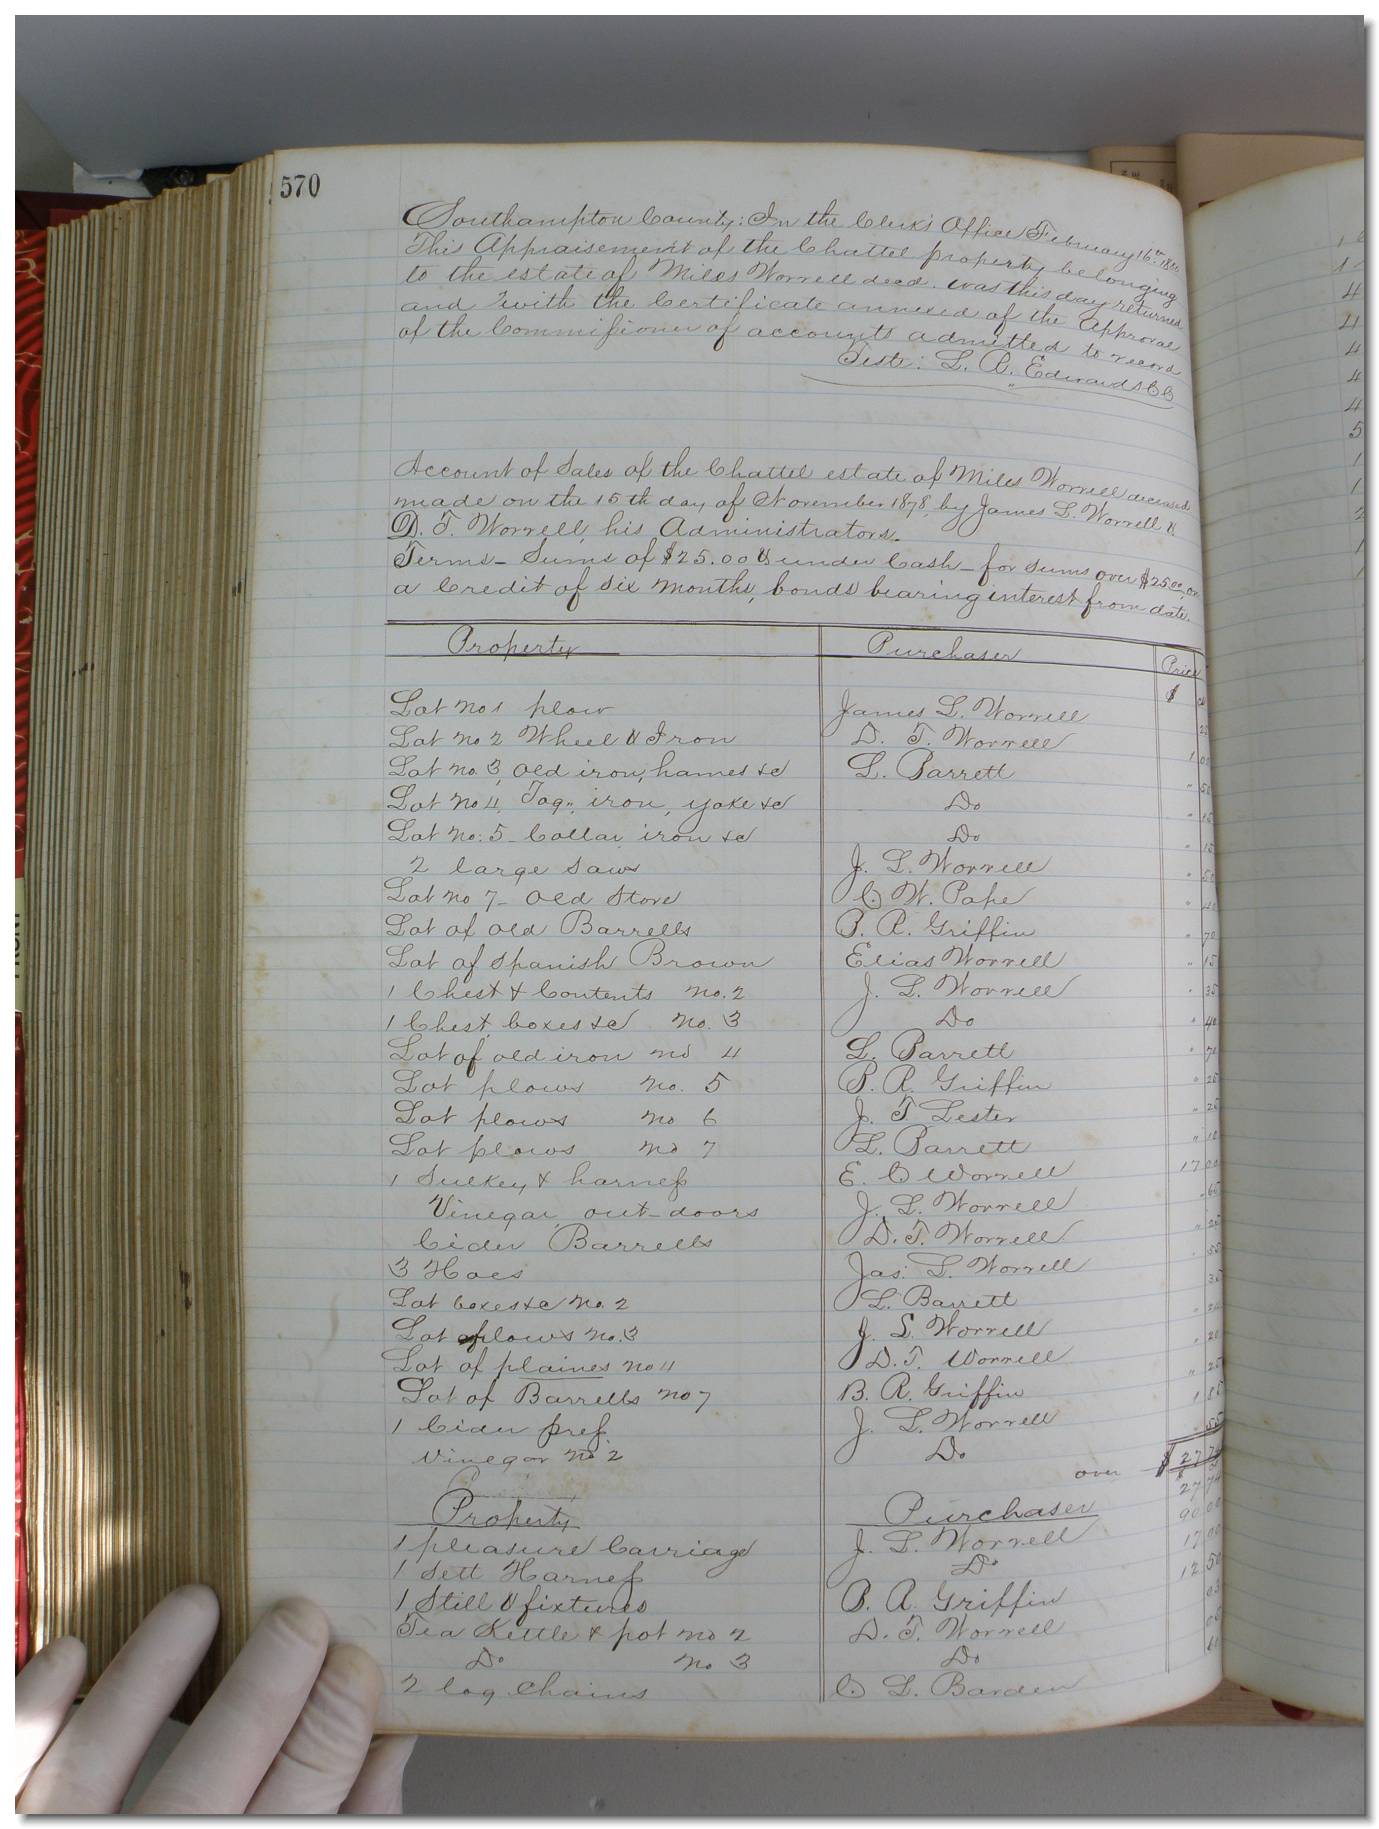 570
Southampton County: In the Clerk's Office February 16th 1880
This Appraisement of the Chattel property belonging
to the estate of Miles Worrell decd. was this day returned
and with the Certificate annexed of the Approval
of the Commissioner of accounts admitted to record
Teste: L. R. Edwards CC
Account of Sales of the Chattel estate of Miles Worrell deceased
made on the 15th day of November 1878, by James L. Worrell &
D. T. Worrell, his Administrators.
Terms - Sums of $25.00 & under Cash - for sums over $25.00, on
a Credit of six months, bonds bearing interest from date.
Property Purchaser Price
$
Lot no 1 plow James L. Worrell 25
Lot no 2 Wheel & Iron D. T. Worrell 1 00
Lot no. 3, old iron, hames &c L. Barrett " 50
Lot no 4, iron, yoke &c Do " 15
Lot no. 5 - Collar iron &c Do " 15
2 large saws J. L. Worrell " 50
Lot no 7 - old Stove C. W. Pape " 40
Lot of old Barrells B. R. Griffin " 70
Lot of Spanish Brown Elias Worrell " 15
1 Chest & Contents no. 2 J. L. Worrell " 35
1 Chest, boxes &c no. 3 Do " 40
Lot of old iron no 4 L. Barrett " 70
Lot plows no. 5 B. R. Griffin " 25
Lot plows no 6 J. T. Lester " 25
Lot plows no 7 L. Barrett " 10
1 Sulkey & harness E. C Worrell 17 00
Vinegar out-doors J. L. Worrell " 65
Cider Barrells D. T. Worrell " 25
3 Hoes Jas. L. Worrell
Lot boxes &c no. 2 L. Barrett
Lot plows no. 3 J. L. Worrell
Lot of plaines no 4 D. T. Worrell " 20
Lot of Barrells no 7 B. R. Griffin " 25
1 Cider press J. L. Worrell 1
Vinegar no 2 Do " 55
over $ 27 74
27 74
Property Purchaser
1 pleasure Carriage J. L. Worrell 90 00
1 Sett Harness Do 17 00
1 Still & fixtures B. R. Griffin 12 50
Tea Kettle & pot no 2 D. T. Worrell
Do no 3 Do
2 log Chains C L. Barden